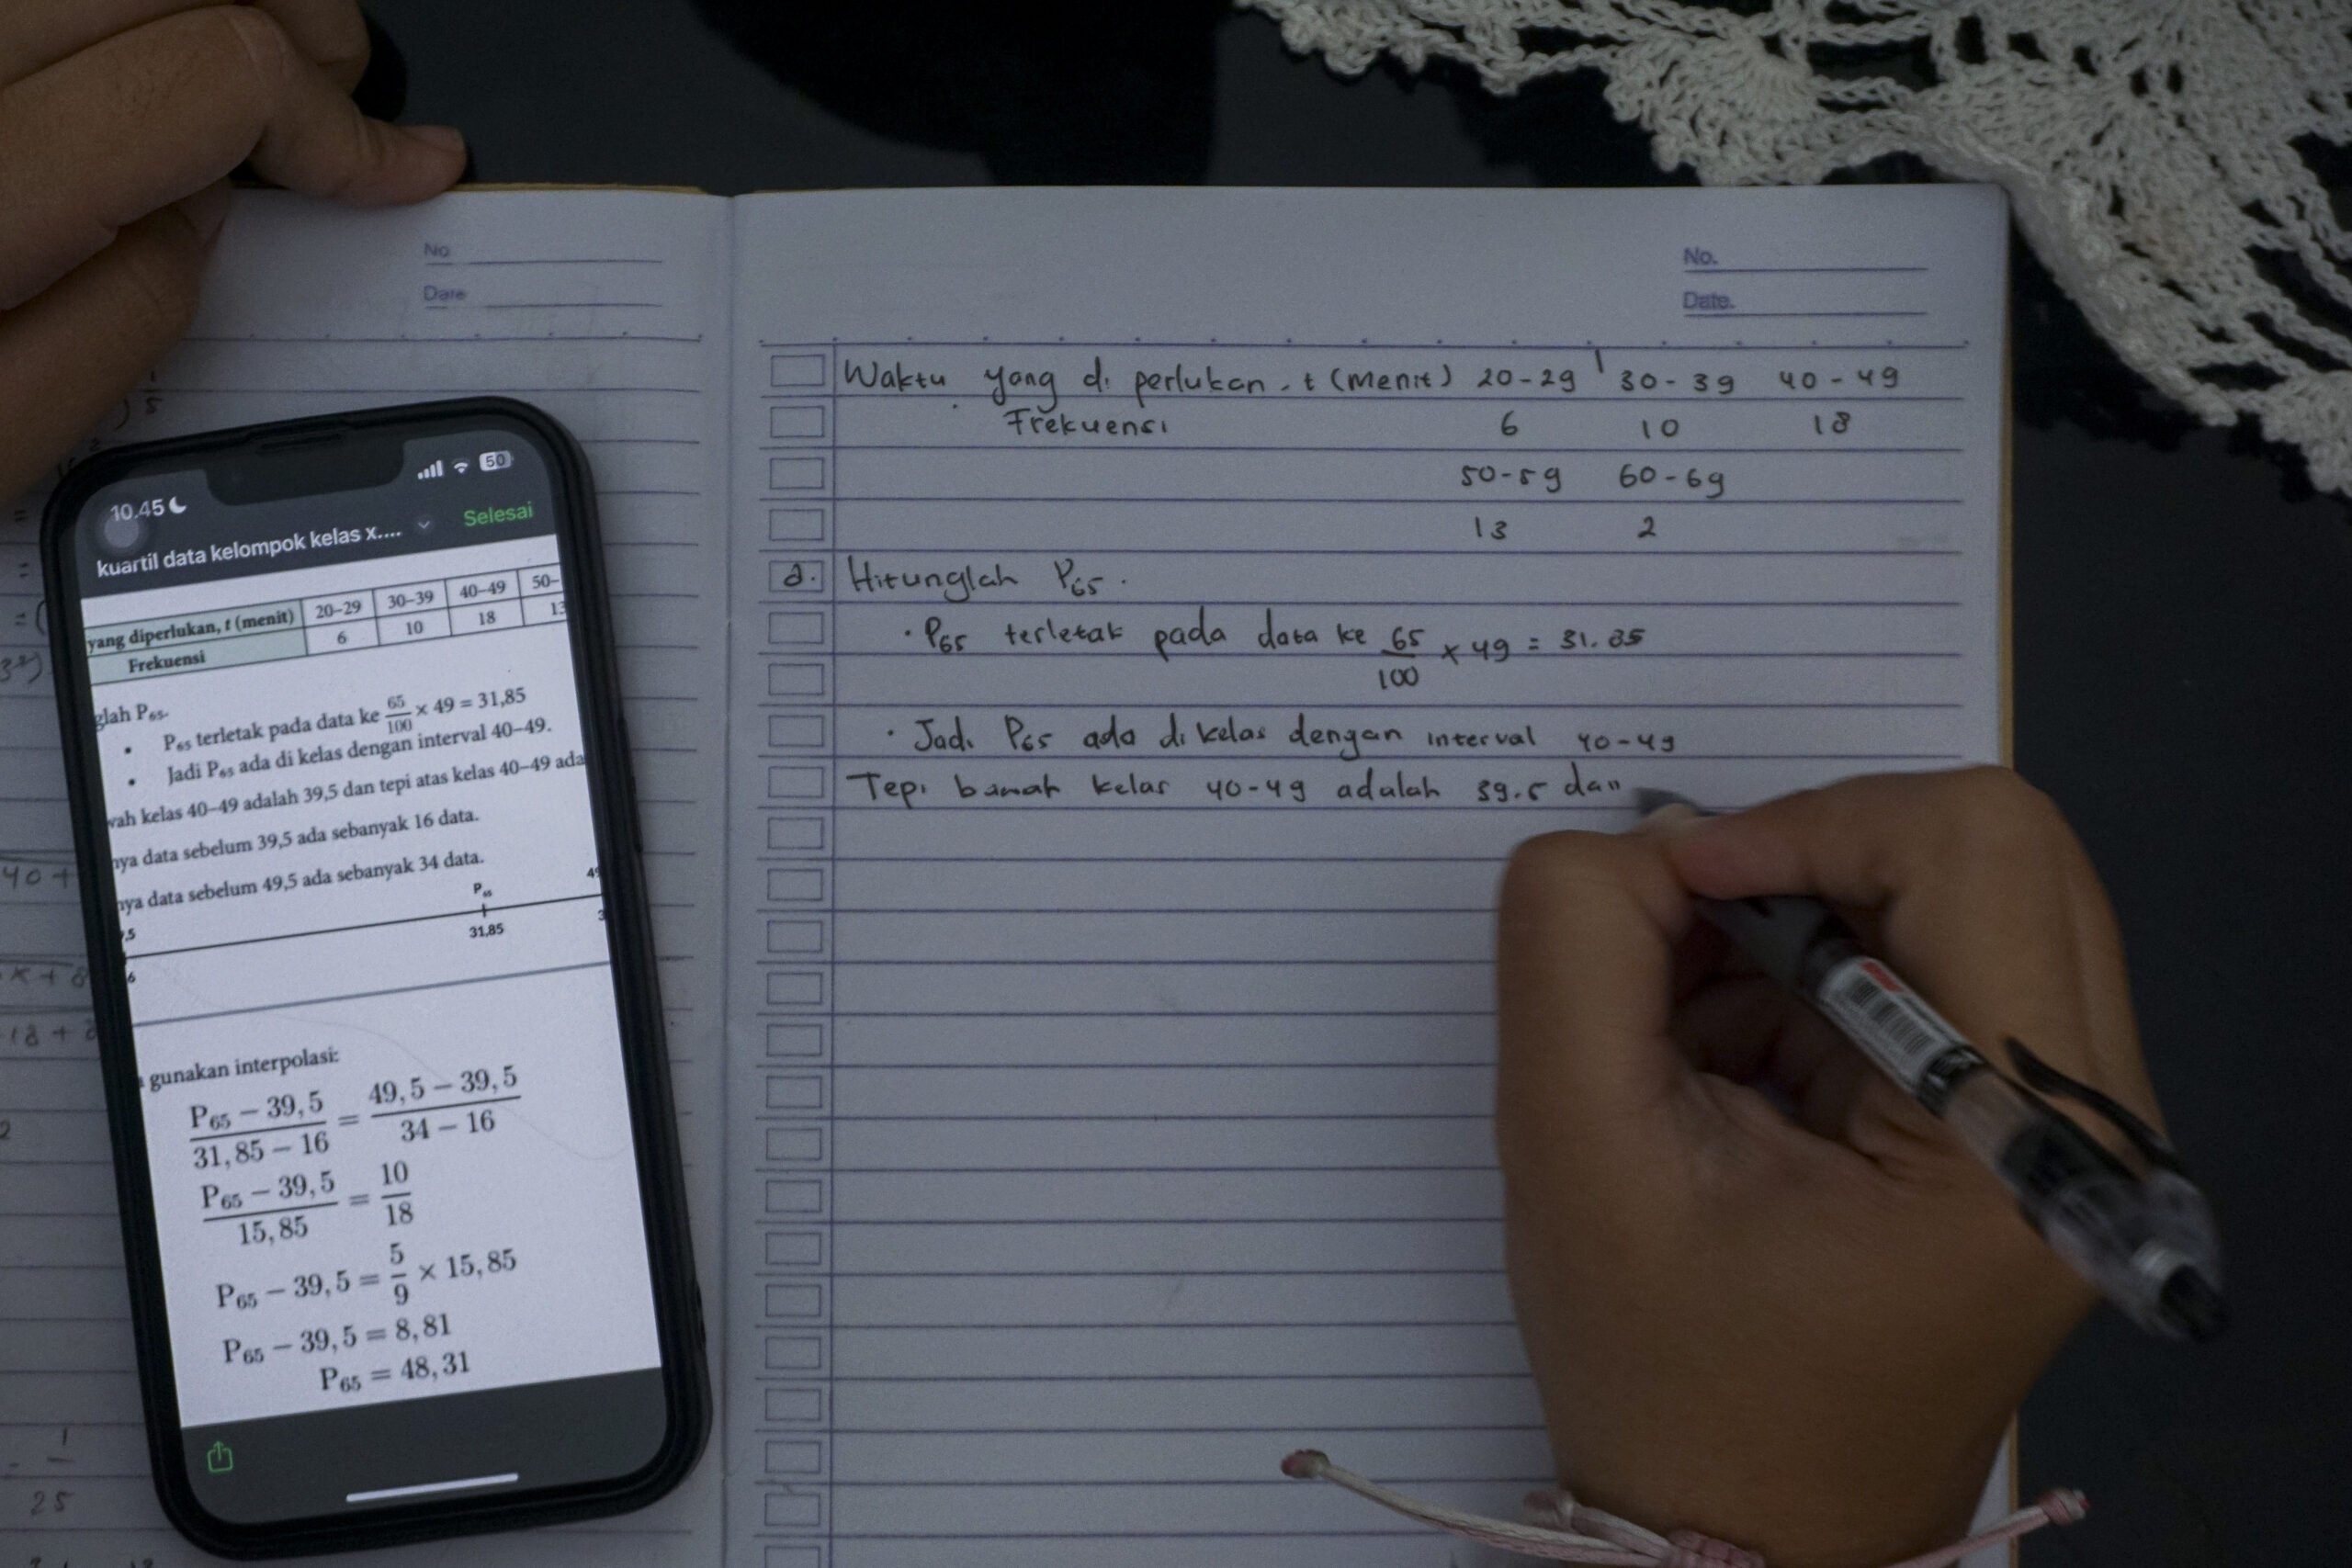 No
Date
No.
Date.
Waktu yang di perlukan, t (menit) 20-29 30-39 40-49
Frekuensi 6 10 18
50-59 60-69
13 2
a. Hitunglah P65.
• P65 terletak pada data ke 65/100 × 49 = 31.85
• Jadi P65 ada di kelas dengan interval 40-49
Tepi bawah kelas 40-49 adalah 39.5 dan
10.45
50
kuartil data kelompok kelas x....
Selesai
yang diperlukan, t (menit) 20–29 30–39 40–49 50–
Frekuensi 6 10 18 13
glah P65.
• P65 terletak pada data ke 65/100 × 49 = 31,85
• Jadi P65 ada di kelas dengan interval 40–49.
wah kelas 40–49 adalah 39,5 dan tepi atas kelas 40–49 ada
nya data sebelum 39,5 ada sebanyak 16 data.
nya data sebelum 49,5 ada sebanyak 34 data.
P65
,5 49
31,85 3
6
gunakan interpolasi:
P65 − 39,5 / 31,85 − 16 = 49,5 − 39,5 / 34 − 16
P65 − 39,5 / 15,85 = 10/18
P65 − 39,5 = 5/9 × 15,85
P65 − 39,5 = 8,81
P65 = 48,31